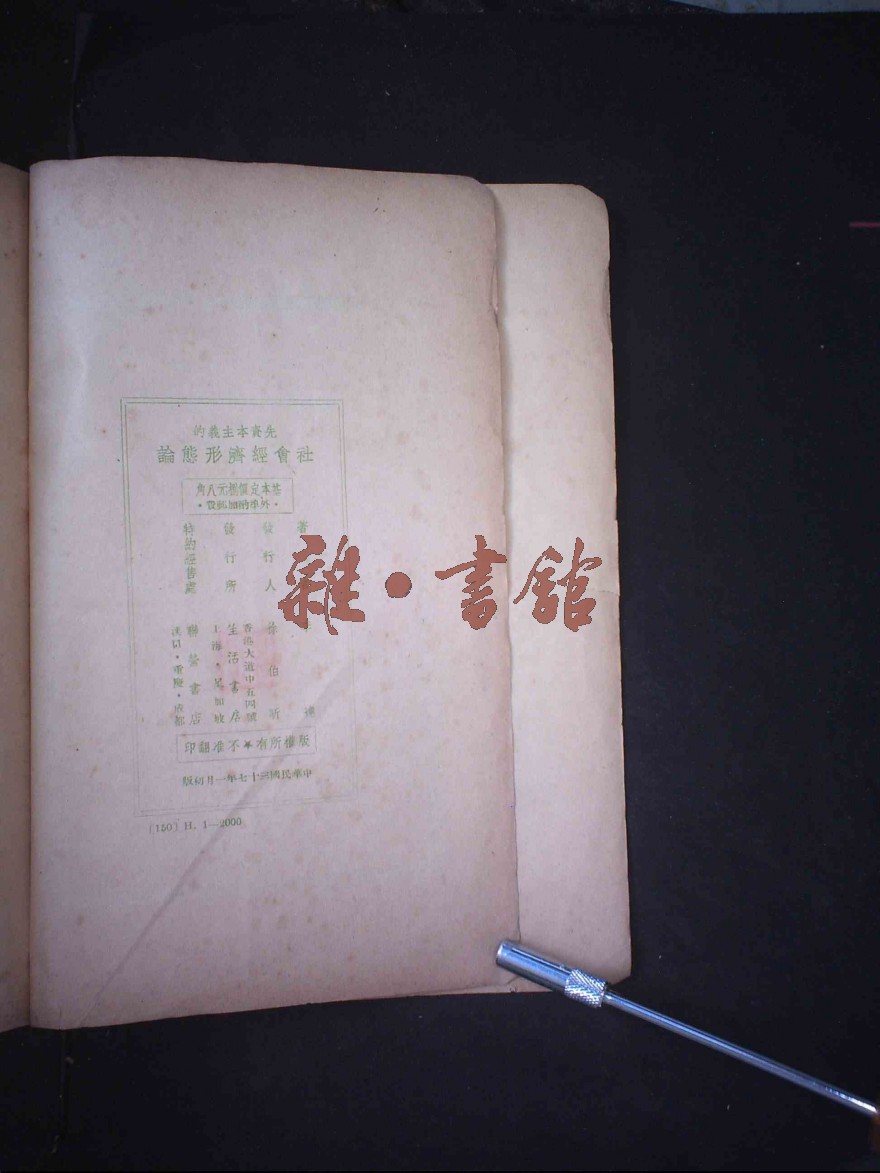 先資本主義的
社會經濟形態論
基本定價捌元八角
·外埠酌加郵費·
著
發行人
發行所
特約經售處
徐伯昕
香港大道中五四號
生活書店
上海·星加坡
聯營書店
漢口·重慶·成都
版權所有★不准翻印
中華民國三十七年一月初版
(150) H. 1—2000
雜·書館